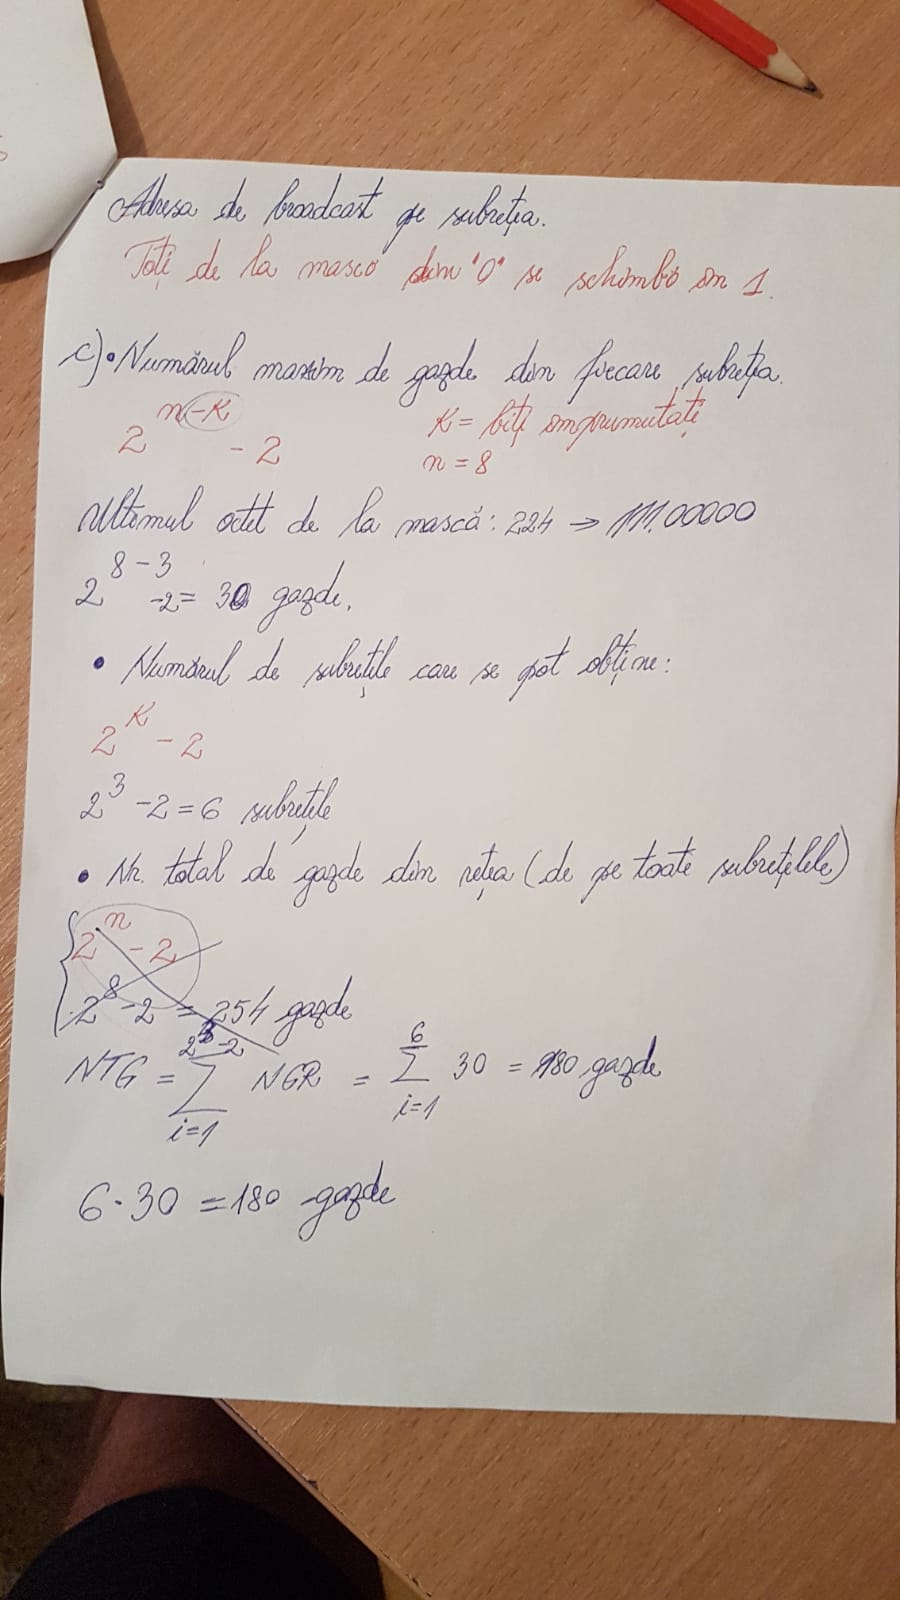 Adresa de broadcast pe subrețea.
Toți de la mască din "0" se schimbă în 1.
c) • Numărul maxim de gazde din fiecare subrețea.
2^(n-K) - 2
K = biți împrumutați
n = 8
Ultimul octet de la mască: 224 → 111.00000
2^(8-3) -2 = 30 gazde.
• Numărul de subrețele care se pot obține:
2^K - 2
2^3 - 2 = 6 subrețele
• Nr. total de gazde din rețea (de pe toate subrețelele)
2^n - 2
2^8 - 2 = 254 gazde
NTG = Σ_(i=1)^(2^3-2) NGR = Σ_(i=1)^6 30 = 180 gazde
6 · 30 = 180 gazde